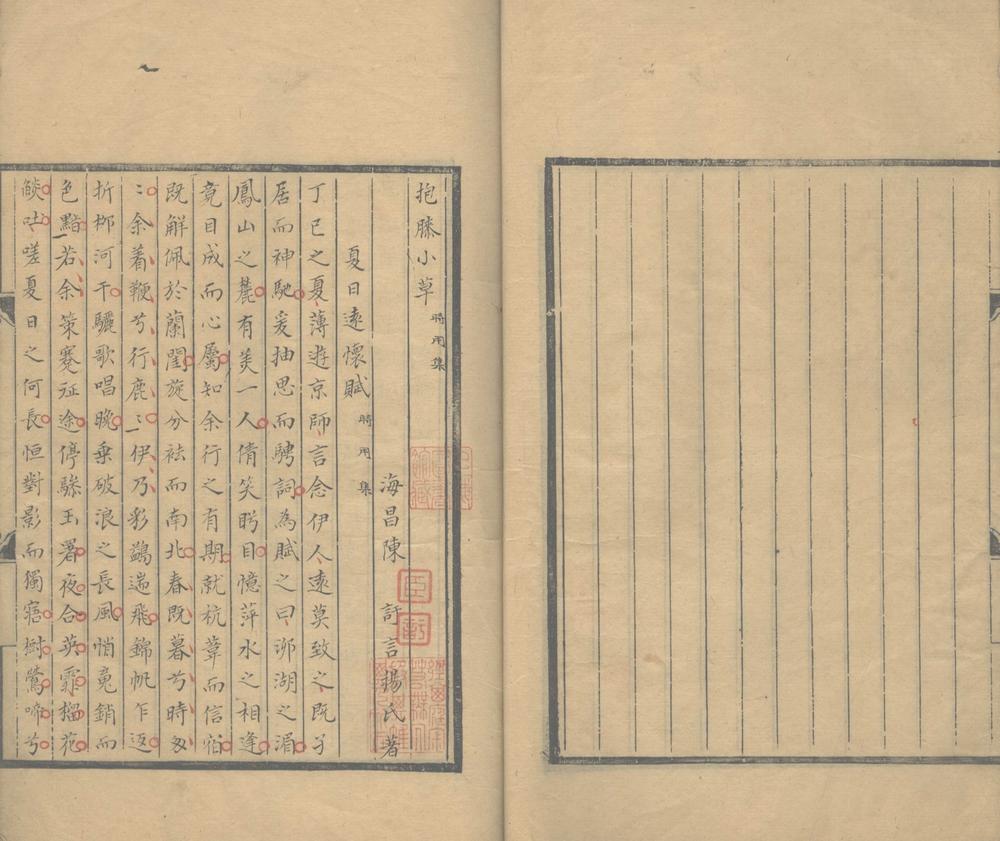 抱膝小草 時用集
海昌陳 訏言揚氏著
夏日遠懷賦 時用集
丁巳之夏薄遊京師言念伊人遠莫致之既孑
居而神馳爰抽思而騁詞為賦之曰泖湖之湄
鳳山之麓有美一人倩笑眄目憶萍水之相逢
竟目成而心屬知余行之有期就杭葦而信宿
既解佩於蘭閨旋分袪而南北春既暮兮時匆
〻余着鞭兮行鹿〻伊乃彩鷁遄飛錦帆乍返
折柳河干驪歌唱晚乗破浪之長風悄䰟銷而
色黯若余策蹇征途停驂玉署夜合英霏榴花
燄吐嗟夏日之何長恒對影而獨寤樹鶯啼兮